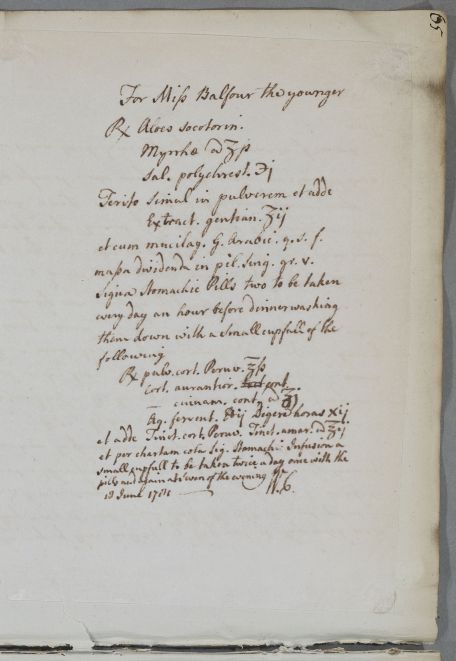 65
For Miss Balfour the younger
℞ Aloes socotorin.
Myrrhæ a ʒß
Sal. polychrest. ℈j
Terito simul in pulverem et adde
Extract. gentian. ʒij
et cum mucilag. G. Arabic. q. s. f.
massa dividenda in pil. sing. gr. v.
Signa Stomachic Pills two to be taken
every day an hour before dinner washing
them down with a small cupfull of the
following
℞ pulv. cort. Peruv. ʒß
Cort. aurantior. cont.
— cinnam. cont. a ʒj
Aq. fervent. ℔ij Digere horas xij
et adde Tinct. cort. Peruv. Tinct. amar. a ʒij
et per chartam cola Sig. Stomachic Infusion a
small cupfull to be taken twice a day one with the
pills and again at seven of the evening
18 June 1781 W. C.